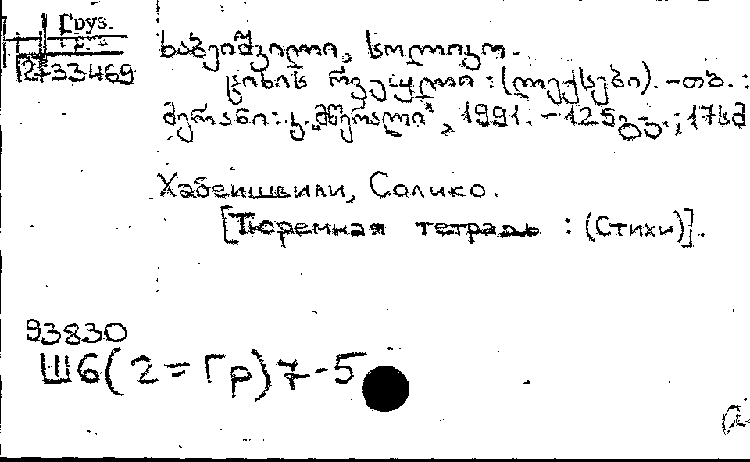 Груз.
2-33469
ხაბეიშვილი, სოლიკო.
ციხის რვეული : (ლექსები). – თბ. :
მერანი : კ. „მწერალი“, 1991. – 125 გვ. ; 17 სმ
Хабеишвили, Солико.
[Тюремная тетрадь : (Стихи)].
93830
Ш6(2=Гр)7-5